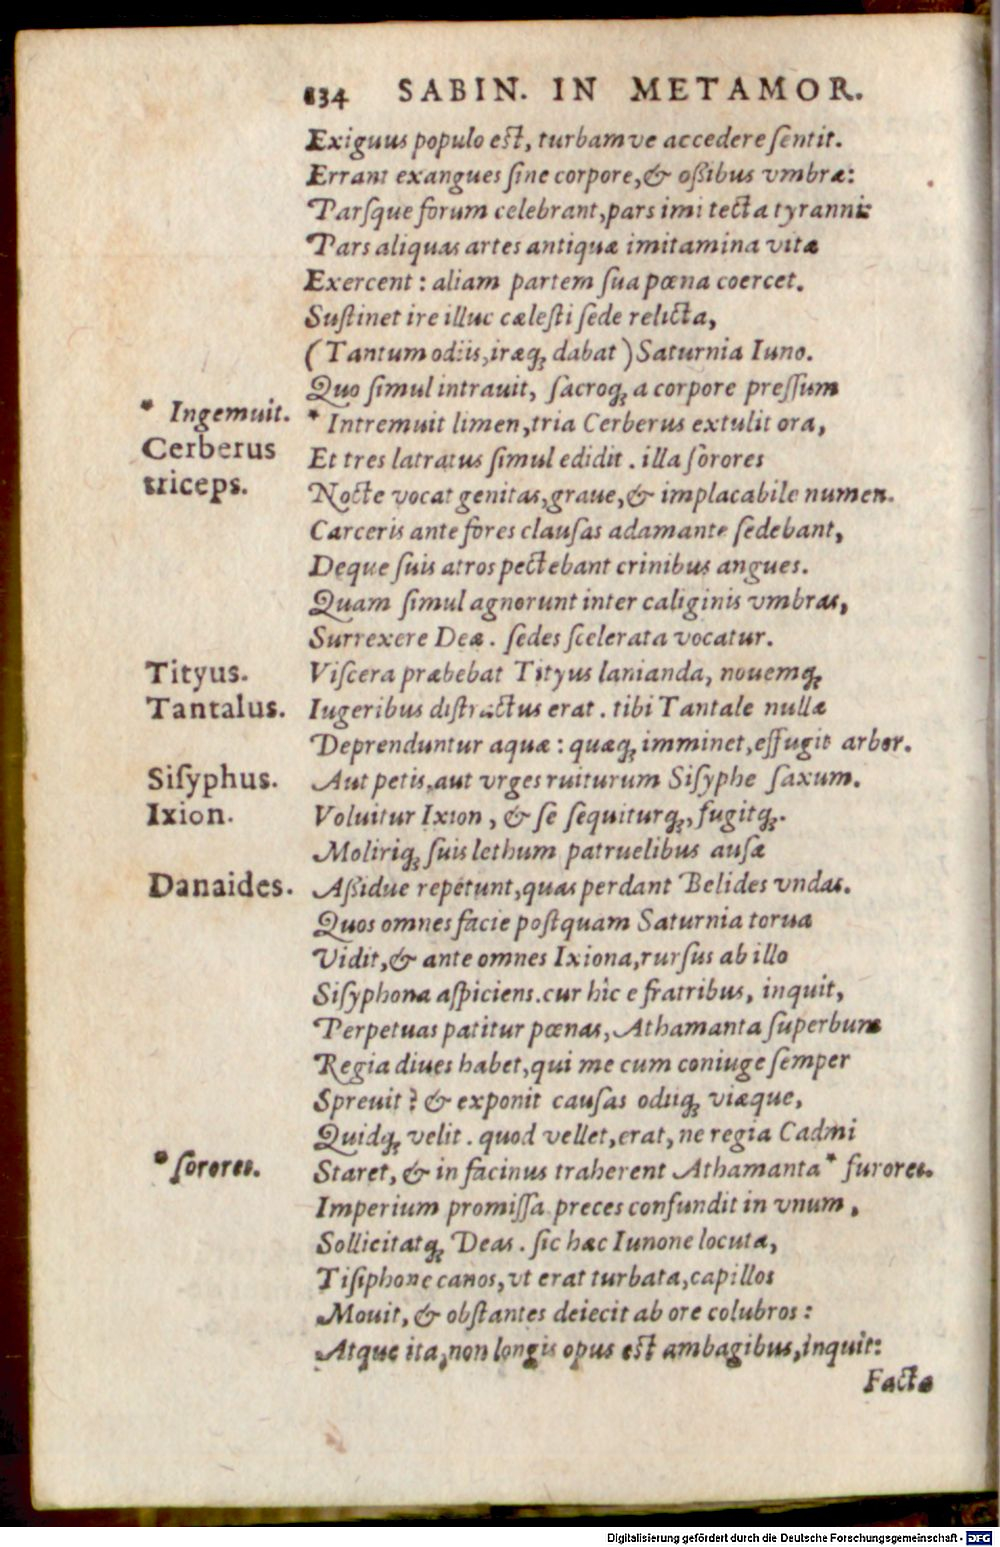 134 SABIN. IN METAMOR.
Exiguus populo est, turbamve accedere ſentit.
Errant exangues ſine corpore, & oßibus vmbræ:
Parſque forum celebrant, pars imi tecta tyranni:
Pars aliquas artes antiquæ imitamina vitæ
Exercent: aliam partem ſua pœna coercet.
Suſtinet ire illuc cæleſti ſede relicta,
(Tantum odiis, iræq; dabat) Saturnia Iuno.
Quo ſimul intrauit, ſacroq; a corpore preſſum
* Ingemuit. * Intremuit limen, tria Cerberus extulit ora,
Cerberus Et tres latratus ſimul edidit. illa ſorores
triceps. Nocte vocat genitas, graue, & implacabile numen.
Carceris ante fores clauſas adamante ſedebant,
Deque ſuis atros pectebant crinibus angues.
Quam ſimul agnorunt inter caliginis vmbras,
Surrexere Deæ. ſedes ſcelerata vocatur.
Tityus. Viſcera præbebat Tityus lanianda, nouemq;
Tantalus. Iugeribus diſtractus erat. tibi Tantale nullæ
Deprenduntur aquæ: quæq; imminet, effugit arbor.
Siſyphus. Aut petis, aut vrges ruiturum Siſyphe ſaxum.
Ixion. Voluitur Ixion, & ſe ſequiturq;, fugitq;.
Moliriq; ſuis lethum patruelibus auſæ
Danaides. Aßidue repetunt, quas perdant Belides vndas.
Quos omnes facie poſtquam Saturnia torua
Vidit, & ante omnes Ixiona, rurſus ab illo
Siſyphona aſpiciens. cur hìc e fratribus, inquit,
Perpetuas patitur pœnas, Athamanta ſuperbum
Regia diues habet, qui me cum coniuge ſemper
Spreuit? & exponit cauſas odiiq; viæque,
Quidq; velit. quod vellet, erat, ne regia Cadmi
* ſorores. Staret, & in facinus traherent Athamanta * furores.
Imperium promiſſa preces confundit in vnum,
Sollicitatq; Deas. ſic hæc Iunone locuta,
Tiſiphone canos, vt erat turbata, capillos
Mouit, & obſtantes deiecit ab ore colubros:
Atque ita, non longis opus est ambagibus, inquit:
Facta
Digitalisierung gefördert durch die Deutsche Forschungsgemeinschaft - DFG